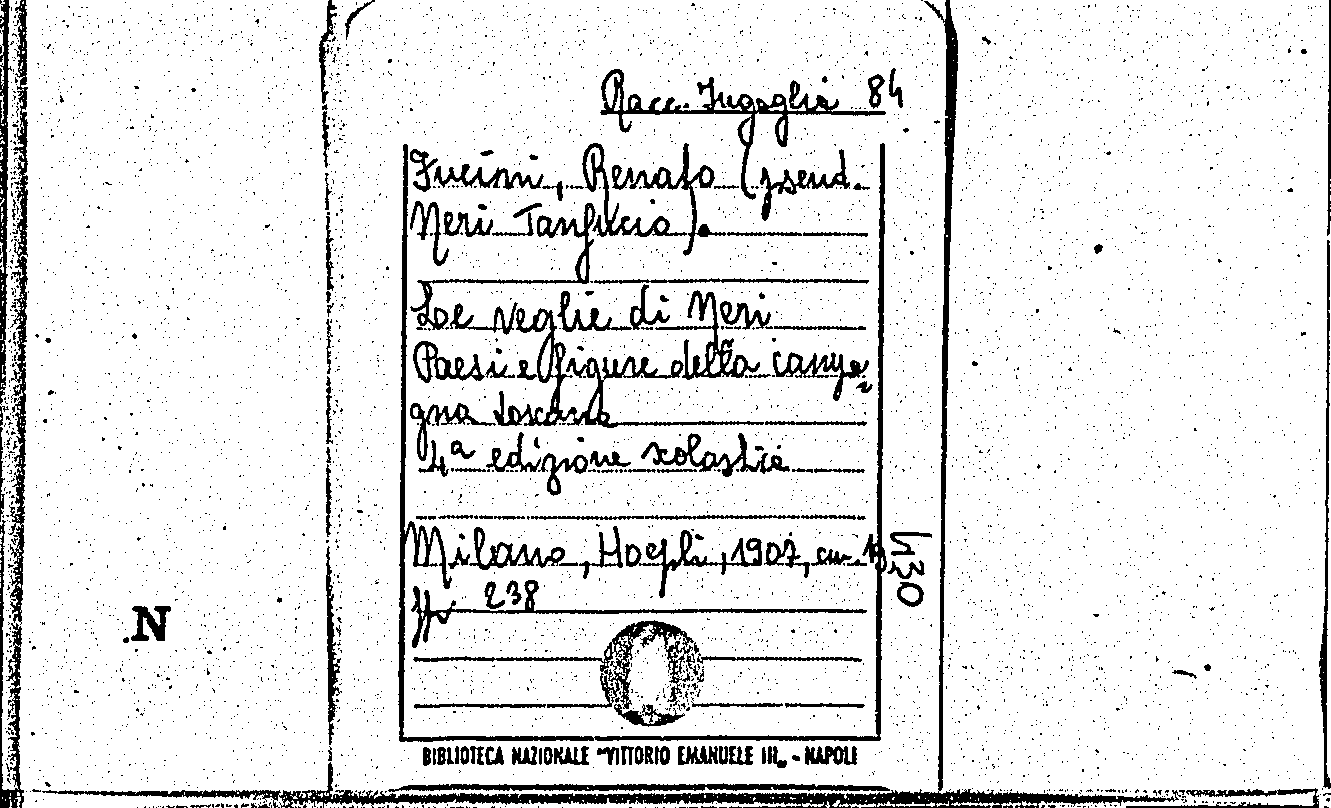 Racc. Fugaglia 84
Fucini, Renato (pseud.
Neri Tanfucio).
Le veglie di Neri
Paesi e figure della campa
gna toscana
4ª edizione scolastica
Milano, Hoepli, 1907, cm. 19
pp 238
430
N
BIBLIOTECA NAZIONALE "VITTORIO EMANUELE III„ - NAPOLI